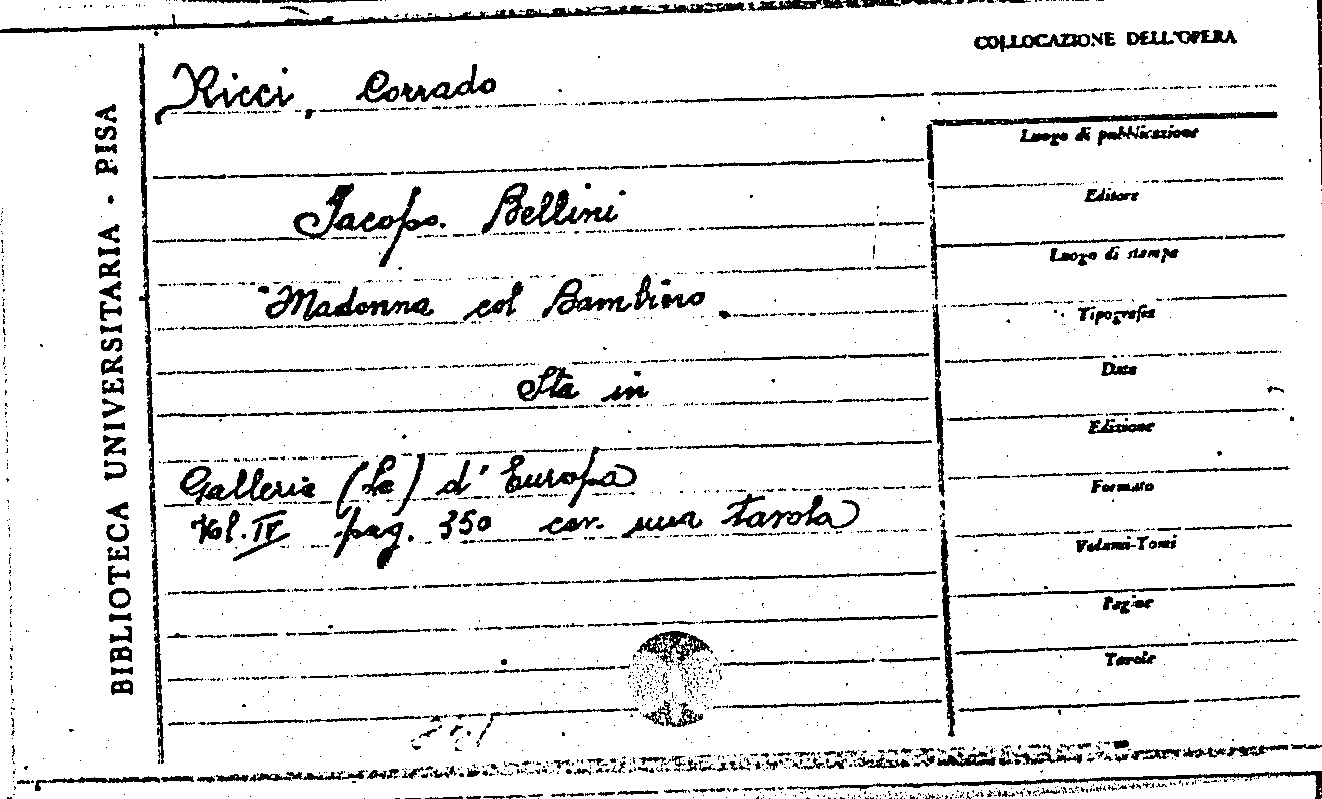 COLLOCAZIONE DELL'OPERA
BIBLIOTECA UNIVERSITARIA - PISA
Ricci, Corrado
Jacopo. Bellini
Madonna col Bambino.
Sta in
Gallerie (Le) d'Europa
Vol. IV pag. 350 con una tavola
Luogo di pubblicazione
Editore
Luogo di stampa
Tipografia
Data
Edizione
Formato
Volumi-Tomi
Pagine
Tavole